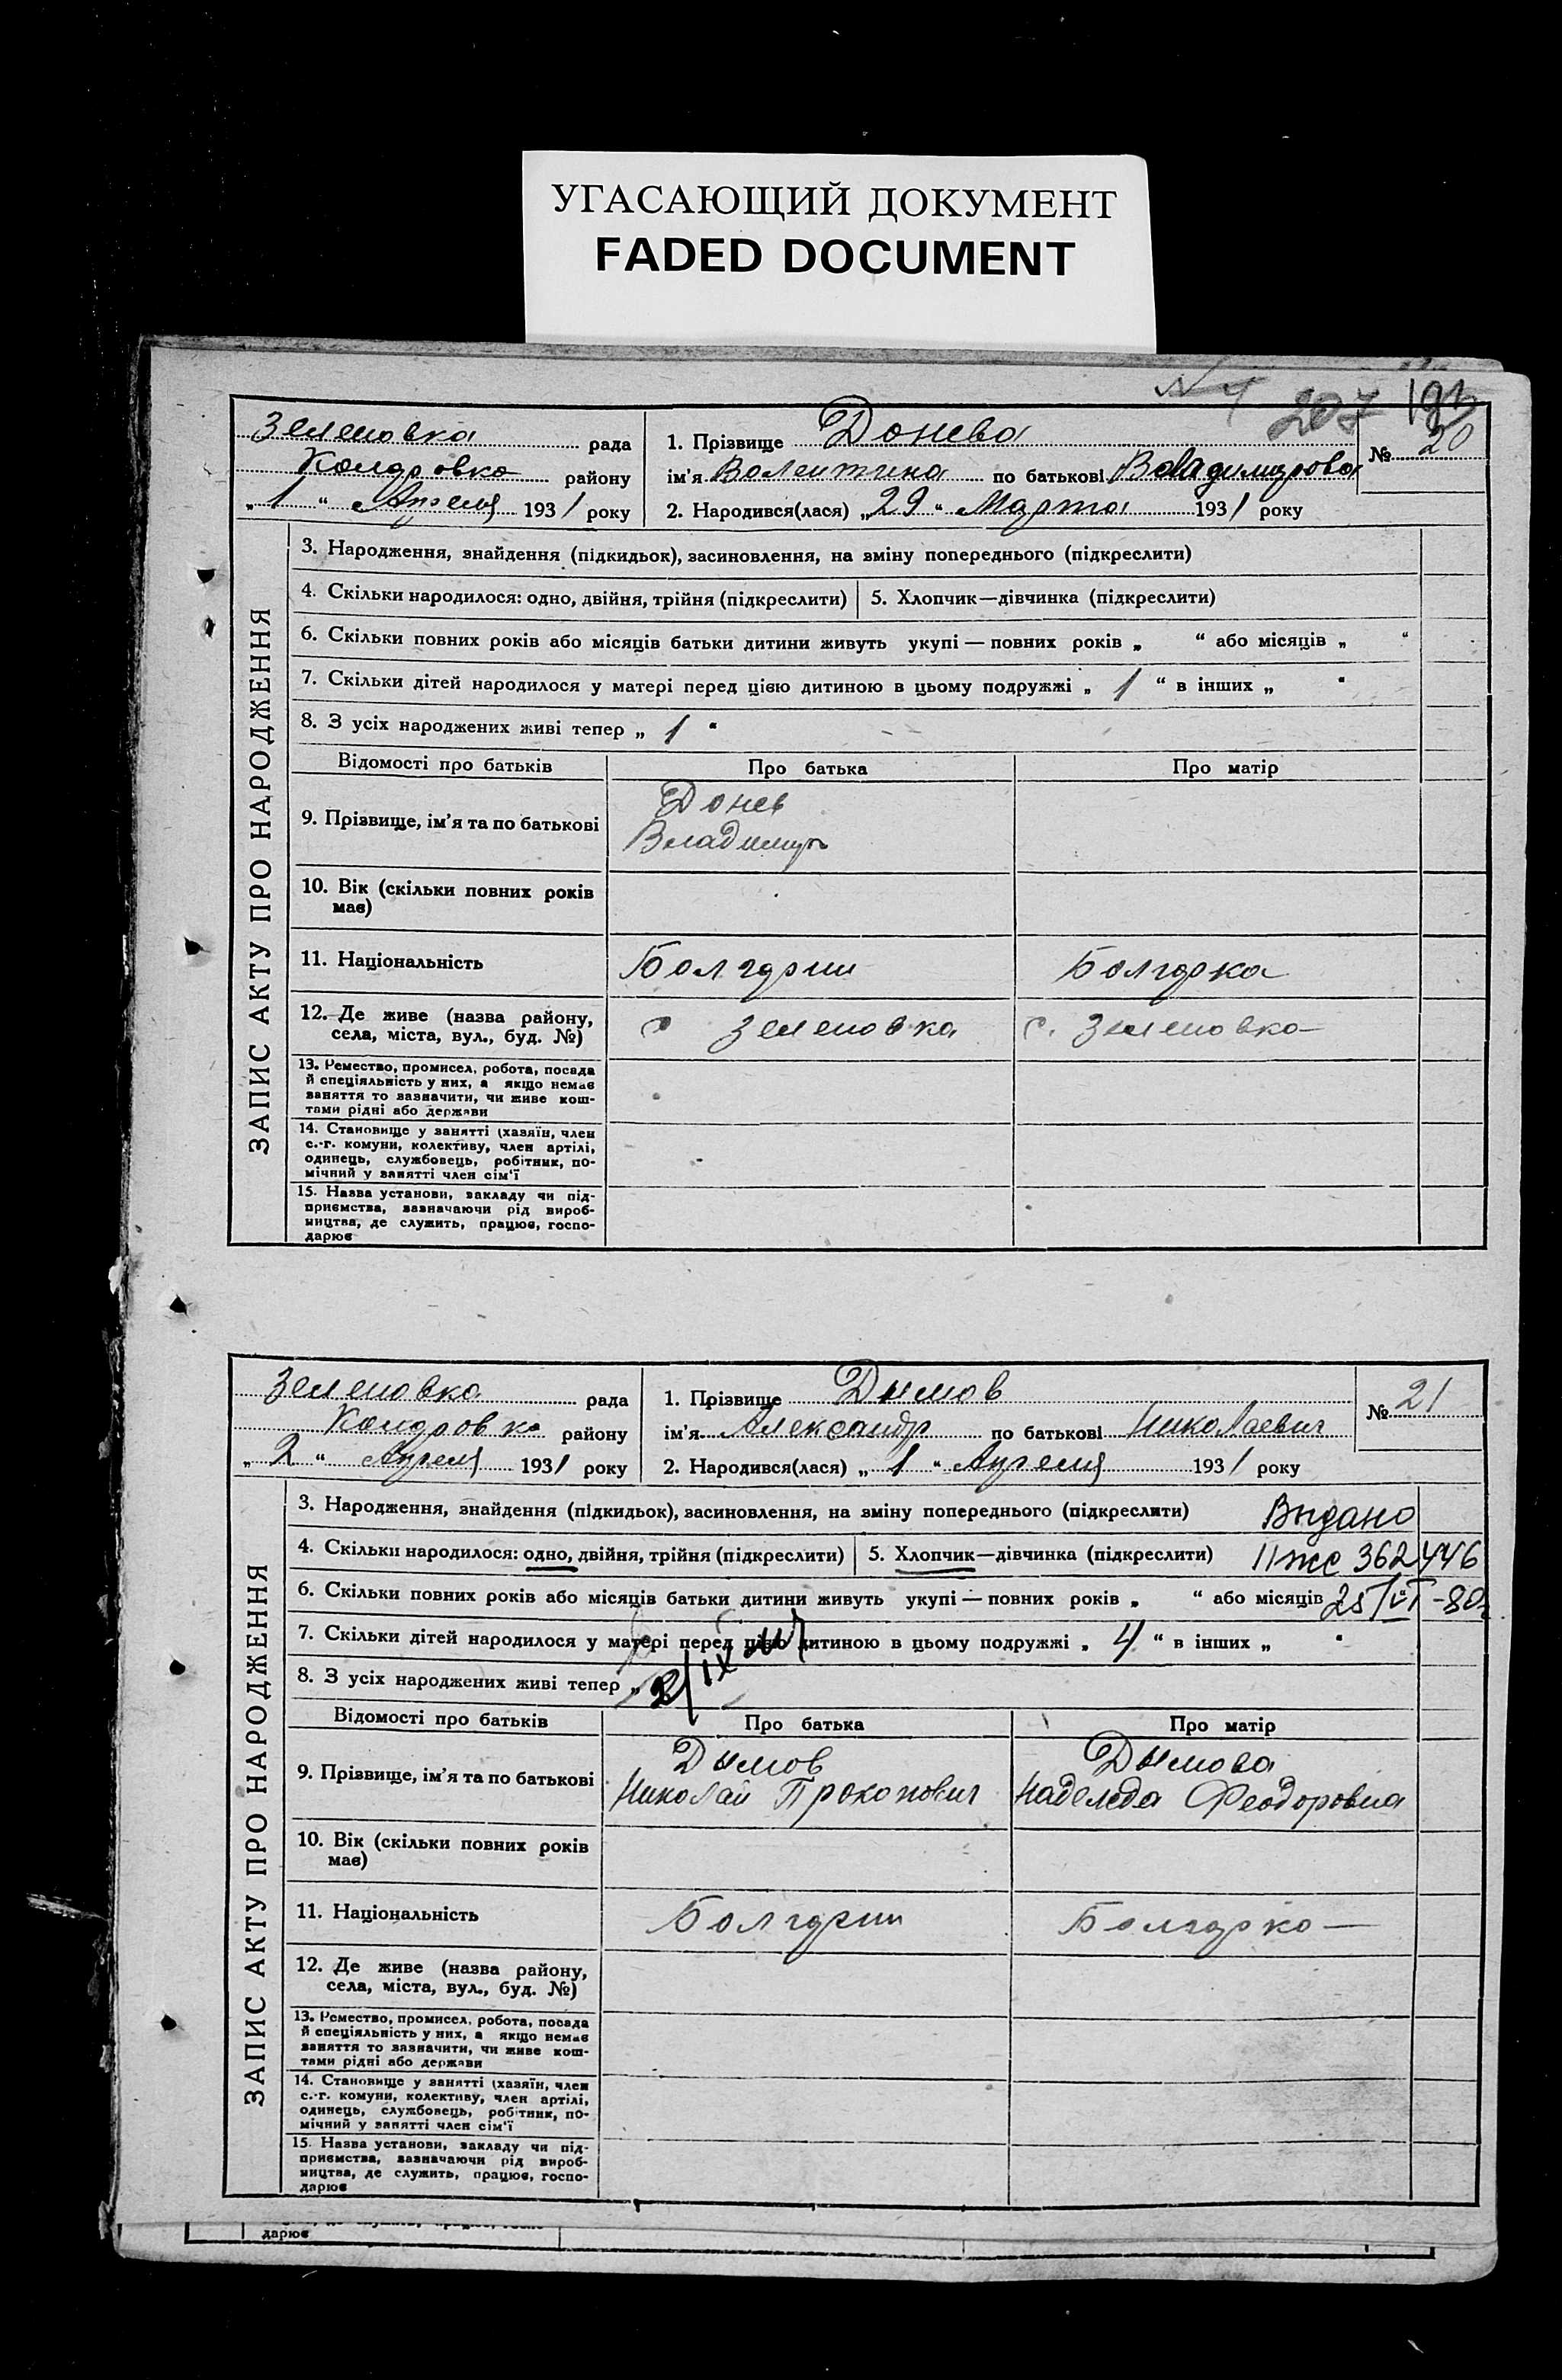 УГАСАЮЩИЙ ДОКУМЕНТ
FADED DOCUMENT
207
ЗАПИС АКТУ ПРО НАРОДЖЕННЯ
Зеленовка рада
район у
„1“ Апреля 1931 року
1. Прізвище Донева
№ 20
ім'я Валентина по батькові Владимирова
2. Народився(лася) „29“ Марта 1931 року
3. Народження, знайдення (підкидьок), засиновлення, на зміну попереднього (підкреслити)
4. Скільки народилося: одно, двійня, трійня (підкреслити) 5. Хлопчик—дівчинка (підкреслити)
6. Скільки повних років або місяців батьки дитини живуть укупі — повних років „ “ або місяців „ “
7. Скільки дітей народилося у матері перед цією дитиною в цьому подружжі „ 1 “ в інших „ “
8. З усіх народжених живі тепер „ 1 “
Відомості про батьків Про батька Про матір
9. Прізвище, ім'я та по батькові Донев
Владимир
10. Вік (скільки повних років
має)
11. Національність Болгарин Болгарка
12. Де живе (назва району,
села, міста, вул., буд. №) с Зеленовка с. Зеленовка
13. Ремество, промисел, робота, посада
й спеціяльність у них, а якщо немає
заняття то зазначити, чи живе кош-
тами рідні або держави
14. Становище у занятті (хазяїн, член
с.-г. комуни, колективу, член артілі,
одинець, службовець, робітник, по-
мічний у занятті член сім'ї
15. Назва установи, закладу чи під-
приємства, зазначаючи рід вироб-
ництва, де служить, працює, госпо-
дарює
ЗАПИС АКТУ ПРО НАРОДЖЕННЯ
Зеленовка рада
району
„2“ Апреля 1931 року
1. Прізвище Дымов
№ 21
ім'я Александр по батькові Николаевич
2. Народився(лася) „1“ Апреля 1931 року
3. Народження, знайдення (підкидьок), засиновлення, на зміну попереднього (підкреслити) Выдано
4. Скільки народилося: одно, двійня, трійня (підкреслити) 5. Хлопчик—дівчинка (підкреслити) II жс 362446
6. Скільки повних років або місяців батьки дитини живуть укупі — повних років „ “ або місяців 25/VI-80г
7. Скільки дітей народилося у матері перед цією дитиною в цьому подружжі „ 4 “ в інших „ “
8. З усіх народжених живі тепер „
Відомості про батьків Про батька Про матір
9. Прізвище, ім'я та по батькові Дымов Дымова
Николай Прокопович Надежда Феодоровна
10. Вік (скільки повних років
має)
11. Національність Болгарин Болгарка
12. Де живе (назва району,
села, міста, вул., буд. №)
13. Ремество, промисел, робота, посада
й спеціяльність у них, а якщо немає
заняття то зазначити, чи живе кош-
тами рідні або держави
14. Становище у занятті (хазяїн, член
с.-г. комуни, колективу, член артілі,
одинець, службовець, робітник, по-
мічний у занятті член сім'ї
15. Назва установи, закладу чи під-
приємства, зазначаючи рід вироб-
ництва, де служить, працює, госпо-
дарює
дарює